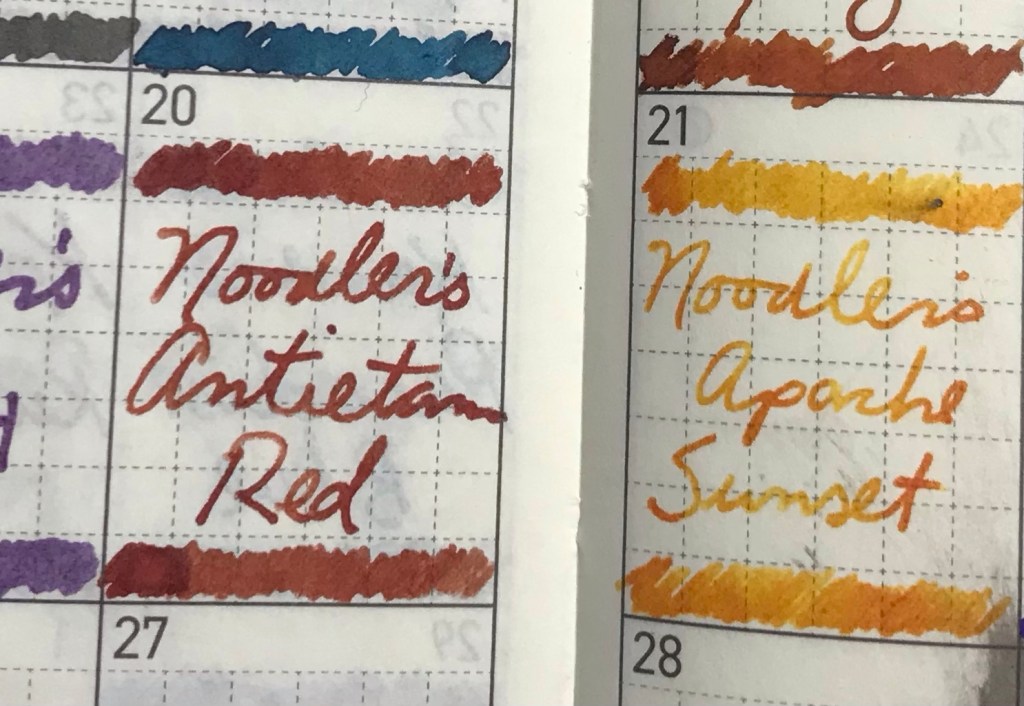 20
Noodler's
Antietam
Red
27
21
Noodler's
Apache
Sunset
28